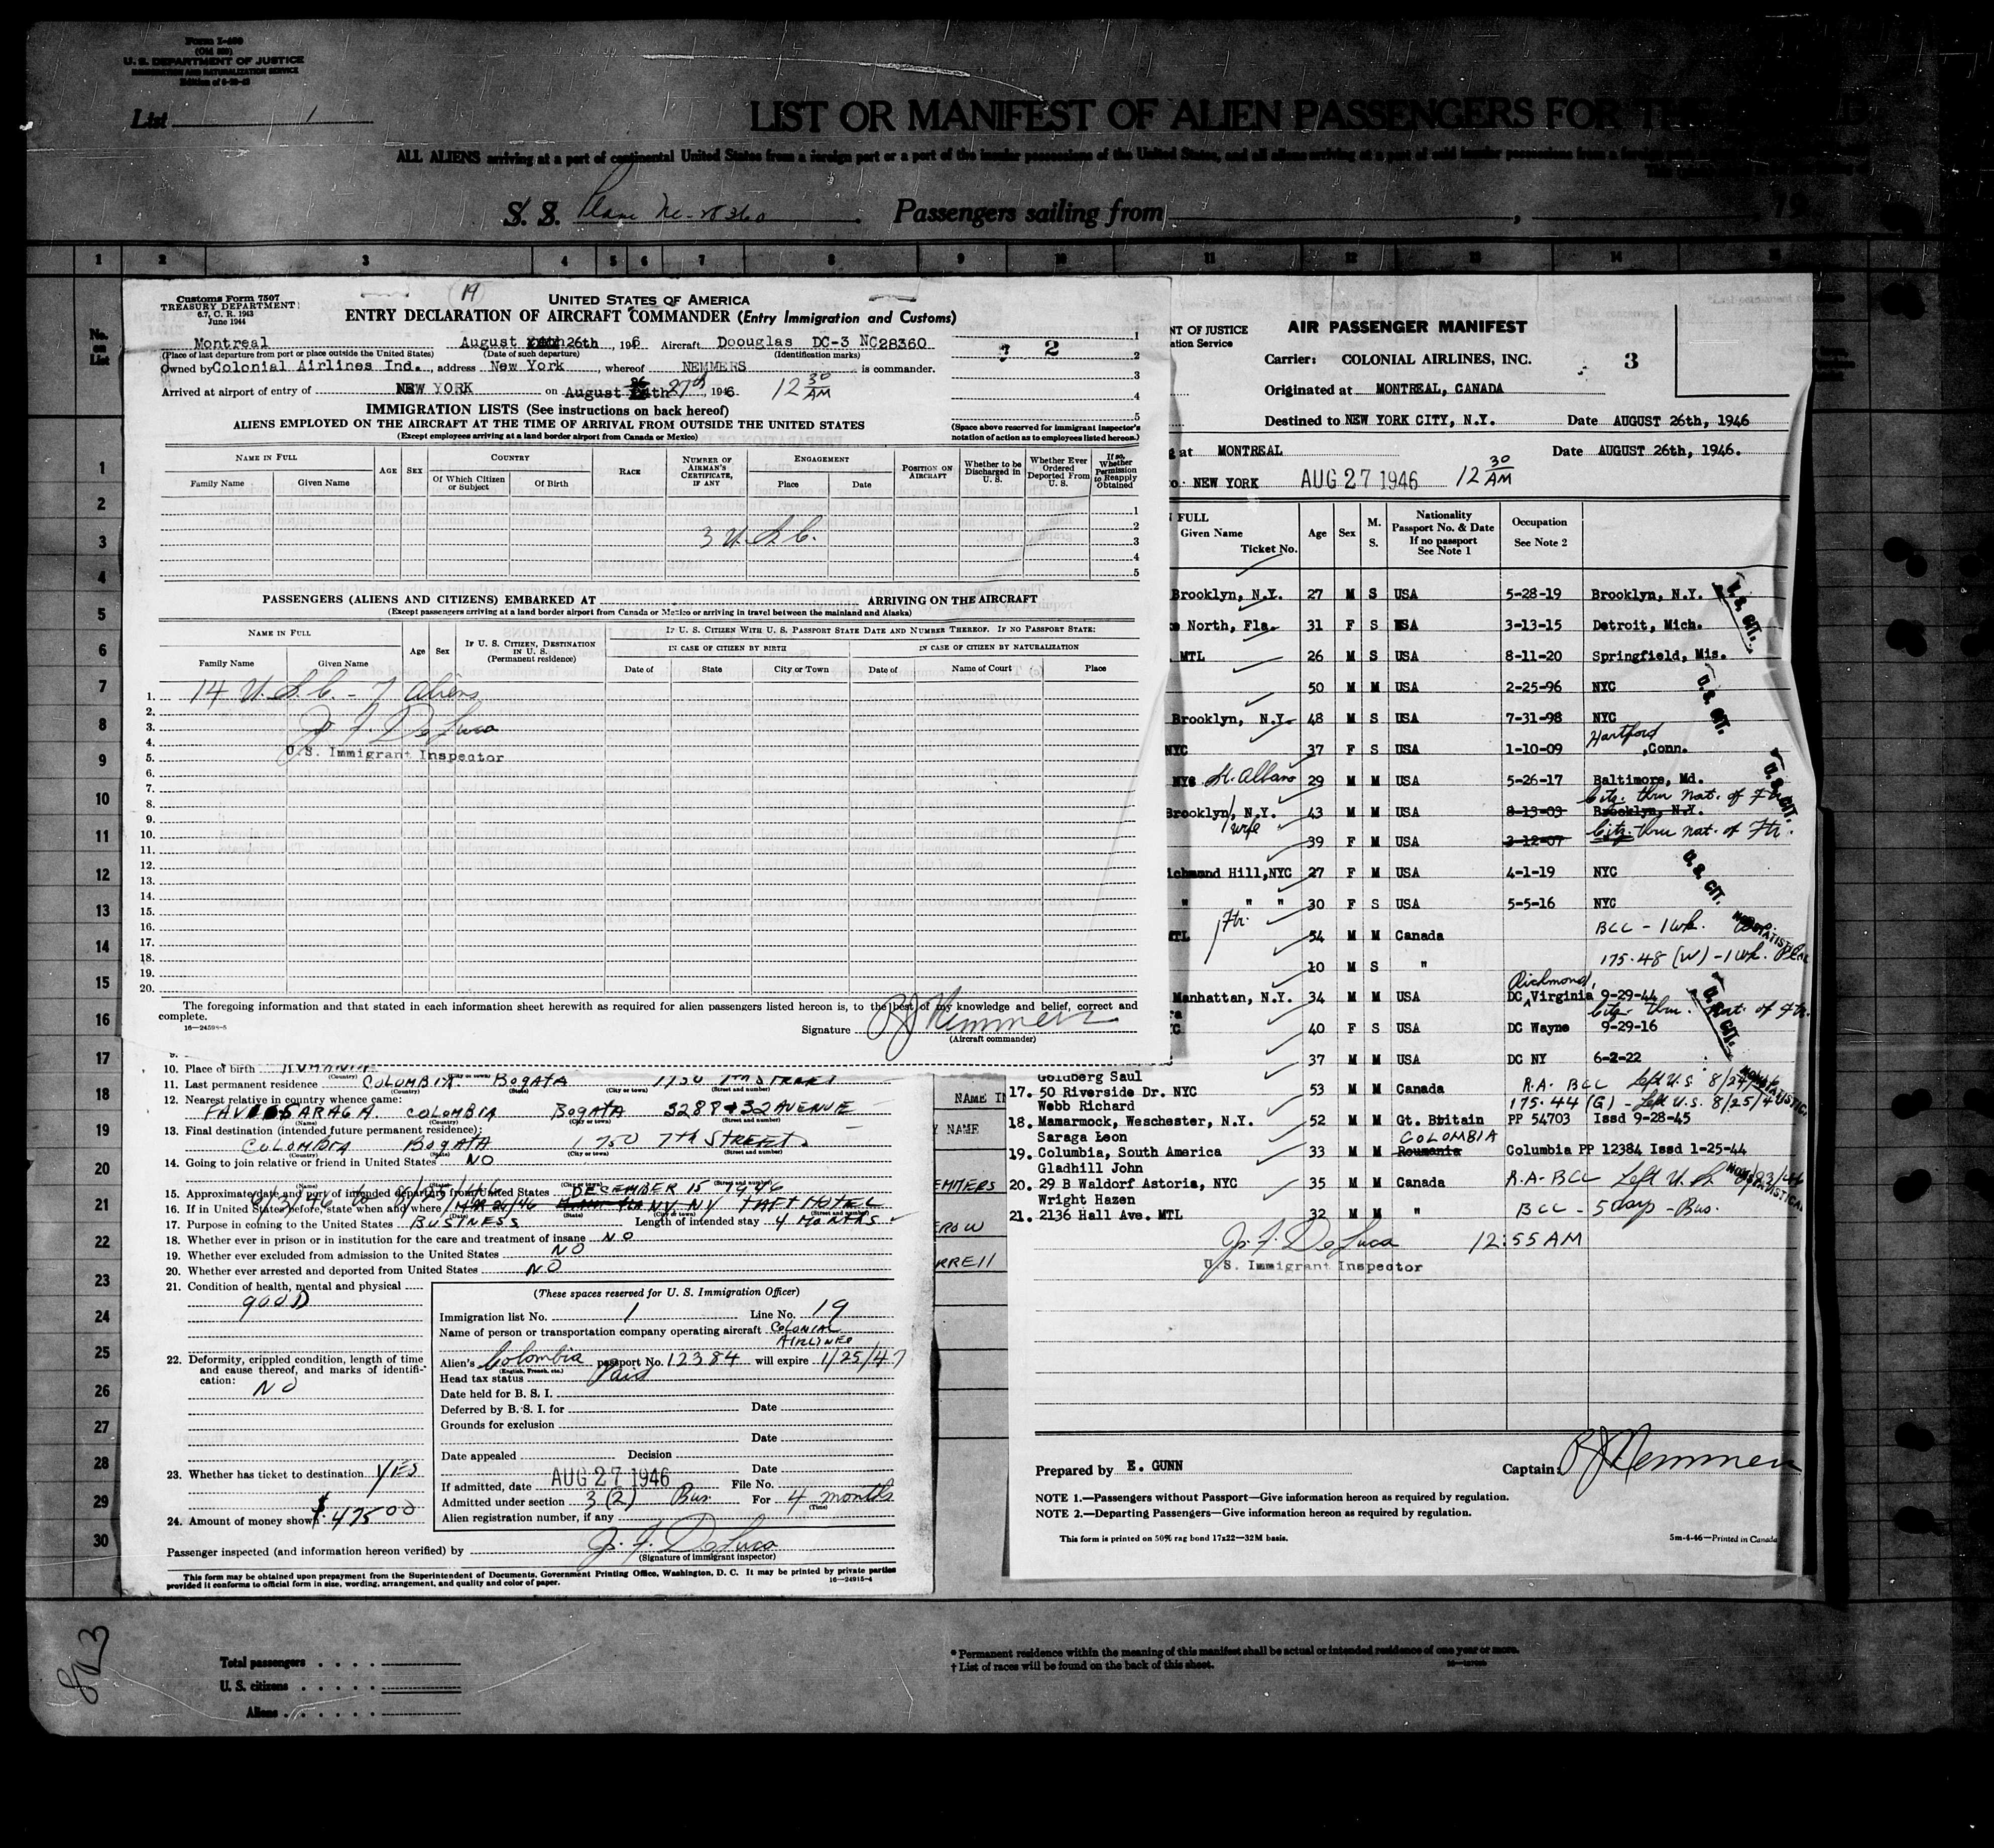 Form I-400
(Old 500)
U. S. DEPARTMENT OF JUSTICE
IMMIGRATION AND NATURALIZATION SERVICE
List 1
LIST OR MANIFEST OF ALIEN PASSENGERS FOR TH
ALL ALIENS arriving at a port of continental United States from a foreign port or a port of the insular possessions of the United States, and all aliens arriving at a port of said insular possessions from a foreign
S. S. Plane Nc-28360 Passengers sailing from , 19
1 2 3 4 5 6 7 8 9 10 11 12 13 14 15
No. on List
1
2
3
4
5
6
7
8
9
10
11
12
13
14
15
16
17
18
19
20
21
22
23
24
25
26
27
28
29
30
Customs Form 7507
TREASURY DEPARTMENT
6.7, C. R. 1943
June 1944
19
UNITED STATES OF AMERICA
ENTRY DECLARATION OF AIRCRAFT COMMANDER (Entry Immigration and Customs)
Montreal August 26th, 1946 Aircraft Doouglas DC-3 NC28360
(Place of last departure from port or place outside the United States) (Date of such departure) (Identification marks)
Owned by Colonial Airlines Ind., address New York, whereof NEMMERS is commander.
Arrived at airport of entry of NEW YORK on August 27th, 1946. 12 30 AM
2
1
2
3
4
5
(Space above reserved for immigrant inspector's notation of action as to employees listed hereon.)
IMMIGRATION LISTS (See instructions on back hereof)
ALIENS EMPLOYED ON THE AIRCRAFT AT THE TIME OF ARRIVAL FROM OUTSIDE THE UNITED STATES
(Except employees arriving at a land border airport from Canada or Mexico)
NAME IN FULL AGE SEX COUNTRY RACE NUMBER OF AIRMAN'S CERTIFICATE, IF ANY ENGAGEMENT POSITION ON AIRCRAFT Whether to be Discharged in U. S. Whether Ever Ordered Deported From U. S. If so, Whether Permission to Reapply Obtained
Family Name Given Name Of Which Citizen or Subject Of Birth Place Date
1
2
3 U.S.C. 3
4
5
PASSENGERS (ALIENS AND CITIZENS) EMBARKED AT ARRIVING ON THE AIRCRAFT
(Except passengers arriving at a land border airport from Canada or Mexico or arriving in travel between the mainland and Alaska)
NAME IN FULL Age Sex IF U. S. CITIZEN, DESTINATION IN U. S. (Permanent residence) IF U. S. CITIZEN WITH U. S. PASSPORT STATE DATE AND NUMBER THEREOF. IF NO PASSPORT STATE:
IN CASE OF CITIZEN BY BIRTH IN CASE OF CITIZEN BY NATURALIZATION
Family Name Given Name Date of State City or Town Date of Name of Court Place
1. 14 U.S.C. - 7 Aliens
2.
3. J. F. DeLuca
4.
5. U.S. Immigrant Inspector
6.
7.
8.
9.
10.
11.
12.
13.
14.
15.
16.
17.
18.
19.
20.
The foregoing information and that stated in each information sheet herewith as required for alien passengers listed hereon is, to the best of my knowledge and belief, correct and complete.
16—24598-5
Signature RJ Nemmers
(Aircraft commander)
9.
10. Place of birth
(Country) (City or town)
11. Last permanent residence COLOMBIA BOGATA 1750 7TH STREET
(Country) (City or town) (Street and number)
12. Nearest relative in country whence came:
SARAGA COLOMBIA BOGATA
(Name) (Country) (City or town) (Street and number)
13. Final destination (intended future permanent residence):
COLOMBIA BOGATA 1750 7TH STREET
(Country) (State) (City or town) (Street and number)
14. Going to join relative or friend in United States NO
(Name) (State) (City or town) (Street and number)
15. Approximate date and port of intended departure from United States DECEMBER 15 1946
16. If in United States before, state when and where NY. NY TAFT HOTEL
(Date) (State) (Street and number)
17. Purpose in coming to the United States BUSINESS Length of intended stay 4 MONTHS
18. Whether ever in prison or in institution for the care and treatment of insane NO
19. Whether ever excluded from admission to the United States NO
20. Whether ever arrested and deported from United States NO
21. Condition of health, mental and physical
GOOD
22. Deformity, crippled condition, length of time and cause thereof, and marks of identification:
NO
23. Whether has ticket to destination YES
24. Amount of money shown $475 00
(These spaces reserved for U. S. Immigration Officer)
Immigration list No. 1 Line No. 19
Name of person or transportation company operating aircraft COLONIAL AIRLINES
Alien's Colombia passport No. 12384 will expire 1/25/47
(English, French, etc.)
Head tax status Paid
Date held for B. S. I.
Deferred by B. S. I. for Date
Grounds for exclusion
Date
Date appealed Decision
Date
If admitted, date AUG 27 1946 File No.
Admitted under section 3 (2) Bus. For 4 months
(Time)
Alien registration number, if any
Passenger inspected (and information hereon verified) by J. F. DeLuca
(Signature of immigrant inspector)
This form may be obtained upon prepayment from the Superintendent of Documents, Government Printing Office, Washington, D. C. It may be printed by private parties provided it conforms to official form in size, wording, arrangement, and quality and color of paper.
16—24915-4
NAME IN
Y NAME
EMMERS
EROW
RRELL
NT OF JUSTICE
ation Service
AIR PASSENGER MANIFEST
Carrier: COLONIAL AIRLINES, INC.
3
Originated at MONTREAL, CANADA
Destined to NEW YORK CITY, N.Y. Date AUGUST 26th, 1946
at MONTREAL Date AUGUST 26th, 1946.
NEW YORK AUG 27 1946 12 30 AM
FULL
Given Name Ticket No. Age Sex M. S. Nationality Passport No. & Date If no passport See Note 1 Occupation See Note 2
Brooklyn, N.Y. 27 M S USA 5-28-19 Brooklyn, N.Y. U.S. CIT.
North, Fla. 31 F S USA 3-13-15 Detroit, Mich.
MTL 26 M S USA 8-11-20 Springfield, Mis.
50 M M USA 2-25-96 NYC U.S. CIT.
Brooklyn, N.Y. 48 M S USA 7-31-98 NYC
NYC 37 F S USA 1-10-09 Hartford, Conn.
NYS St. Albans 29 M M USA 5-26-17 Baltimore, Md. U.S. CIT.
Citz. thru nat. of Ftr.
Brooklyn, N.Y. 43 M M USA 8-13-03 Brooklyn, N.Y.
wife 39 F M USA 2-12-07 Citz. thru nat. of Ftr.
Richmond Hill, NYC 27 F M USA 4-1-19 NYC U.S. CIT.
" " " 30 F S USA 5-5-16 NYC
MTL Ftr. 54 M M Canada BCC - 1 wk.
10 M S " 175.48 (W) - 1 wk.
Richmond,
Manhattan, N.Y. 34 M M USA DC Virginia 9-29-44 U.S. CIT.
Citz. thru. nat. of Ftr.
40 F S USA DC Wayne 9-29-16
37 M M USA DC NY 6-2-22
Goldberg Saul
17. 50 Riverside Dr. NYC 53 M M Canada R.A. BCC Left U.S. 8/24/46
Webb Richard 175.44 (G) - Left U.S. 8/25/4
18. Mamarmock, Weschester, N.Y. 52 M M Gt. Britain PP 54703 Issd 9-28-45
Saraga Leon COLOMBIA
19. Columbia, South America 33 M M Roumania Columbia PP 12384 Issd 1-25-44
Gladhill John
20. 29 B Waldorf Astoria, NYC 35 M M Canada R.A.-BCC Left U.S.
Wright Hazen
21. 2136 Hall Ave. MTL 32 M M " BCC - 5 days - Bus.
J. F. DeLuca 12:55 AM
U.S. Immigrant Inspector
Prepared by E. GUNN Captain: RJ Nemmers
NOTE 1.—Passengers without Passport—Give information hereon as required by regulation.
NOTE 2.—Departing Passengers—Give information hereon as required by regulation.
This form is printed on 50% rag bond 17x22—32M basis. 5m-4-46—Printed in Canada
803
Total passengers
U. S. citizens
Aliens
* Permanent residence within the meaning of this manifest shall be actual or intended residence of one year or more.
† List of races will be found on the back of this sheet.